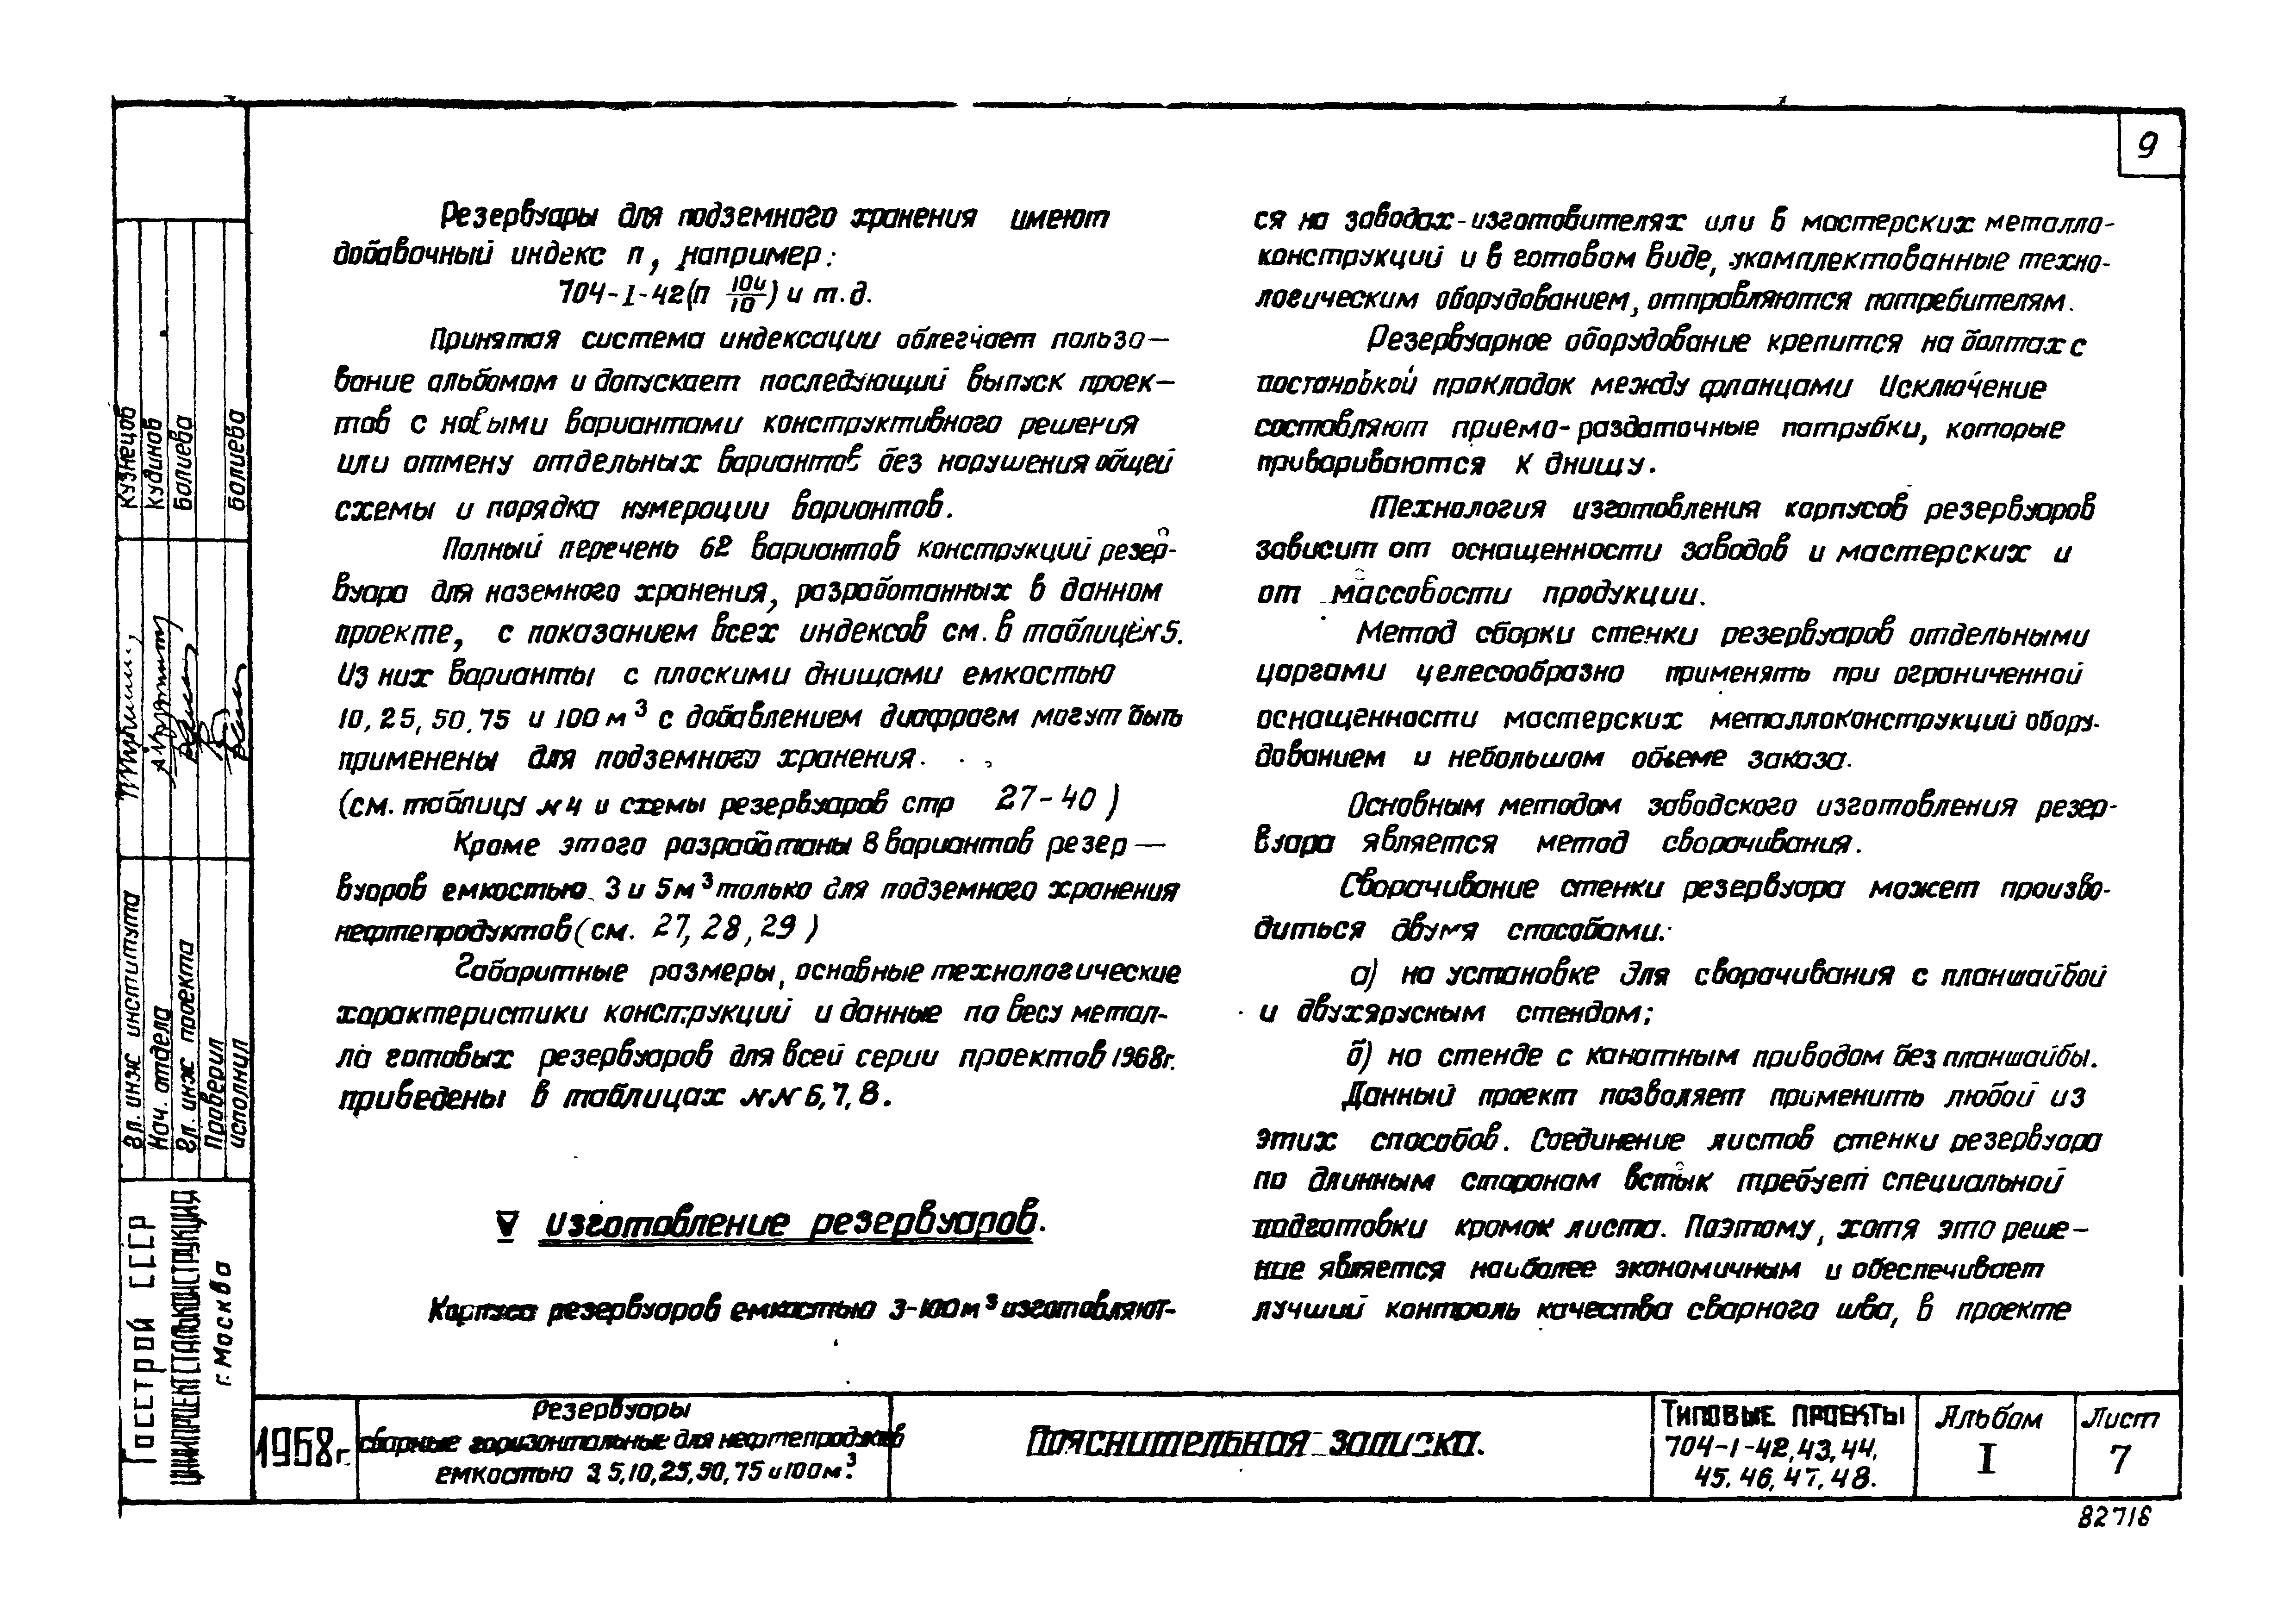 9
Резервуары для подземного хранения имеют
добавочный индекс п, например:
704-I-42(п 104/10) и т.д.
Принятая система индексации облегчает пользо-
вание альбомом и допускает последующий выпуск проек-
тов с новыми вариантами конструктивного решения
или отмену отдельных вариантов без нарушения общей
схемы и порядка нумерации вариантов.
Полный перечень 62 вариантов конструкций резер-
вуара для наземного хранения, разработанных в данном
проекте, с показанием всех индексов см. в таблице №5.
Из них варианты с плоскими днищами емкостью
10, 25, 50, 75 и 100 м³ с добавлением диафрагм могут быть
применены для подземного хранения.
(см. таблицу №4 и схемы резервуаров стр 27-40)
Кроме этого разработаны 8 вариантов резер-
вуаров емкостью 3 и 5 м³ только для подземного хранения
нефтепродуктов (см. 27, 28, 29)
Габаритные размеры, основные технологические
характеристики конструкций и данные по весу метал-
ла готовых резервуаров для всей серии проектов 1968г.
приведены в таблицах №№ 6, 7, 8.
V изготовление резервуаров.
Корпуса резервуаров емкостью 3-100 м³ изготовляют-
ся на заводах-изготовителях или в мастерских металло-
конструкций и в готовом виде, укомплектованные техно-
логическим оборудованием, отправляются потребителям.
Резервуарное оборудование крепится на болтах с
постановкой прокладок между фланцами Исключение
составляют приемо-раздаточные патрубки, которые
привариваются к днищу.
Технология изготовления корпусов резервуаров
зависит от оснащенности заводов и мастерских и
от массовости продукции.
Метод сборки стенки резервуаров отдельными
царгами целесообразно применять при ограниченной
оснащенности мастерских металлоконструкций обору-
дованием и небольшом объеме заказа.
Основным методом заводского изготовления резер-
вуара является метод сворачивания.
Сворачивание стенки резервуара может произво-
диться двумя способами:
а) на установке для сворачивания с планшайбой
и двухярусным стендом;
б) на стенде с канатным приводом без планшайбы.
Данный проект позволяет применить любой из
этих способов. Соединение листов стенки резервуара
по длинным сторонам встык требует специальной
подготовки кромок листа. Поэтому, хотя это реше-
ние является наиболее экономичным и обеспечивает
лучший контроль качества сварного шва, в проекте
Кузнецов
Кудинов
Балиева
Балиева
Гл. инж института
Нач. отдела
Гл. инж проекта
Проверил
исполнил
Госстрой СССР
ЦНИИПРОЕКТСТАЛЬКОНСТРУКЦИЯ
г. Москва
1968г.
Резервуары
сборные горизонтальные для нефтепродуктов
емкостью 3, 5, 10, 25, 50, 75 и 100 м³.
Пояснительная записка.
Типовые проекты
704-1-42, 43, 44,
45, 46, 47, 48.
Альбом
I
Лист
7
82718